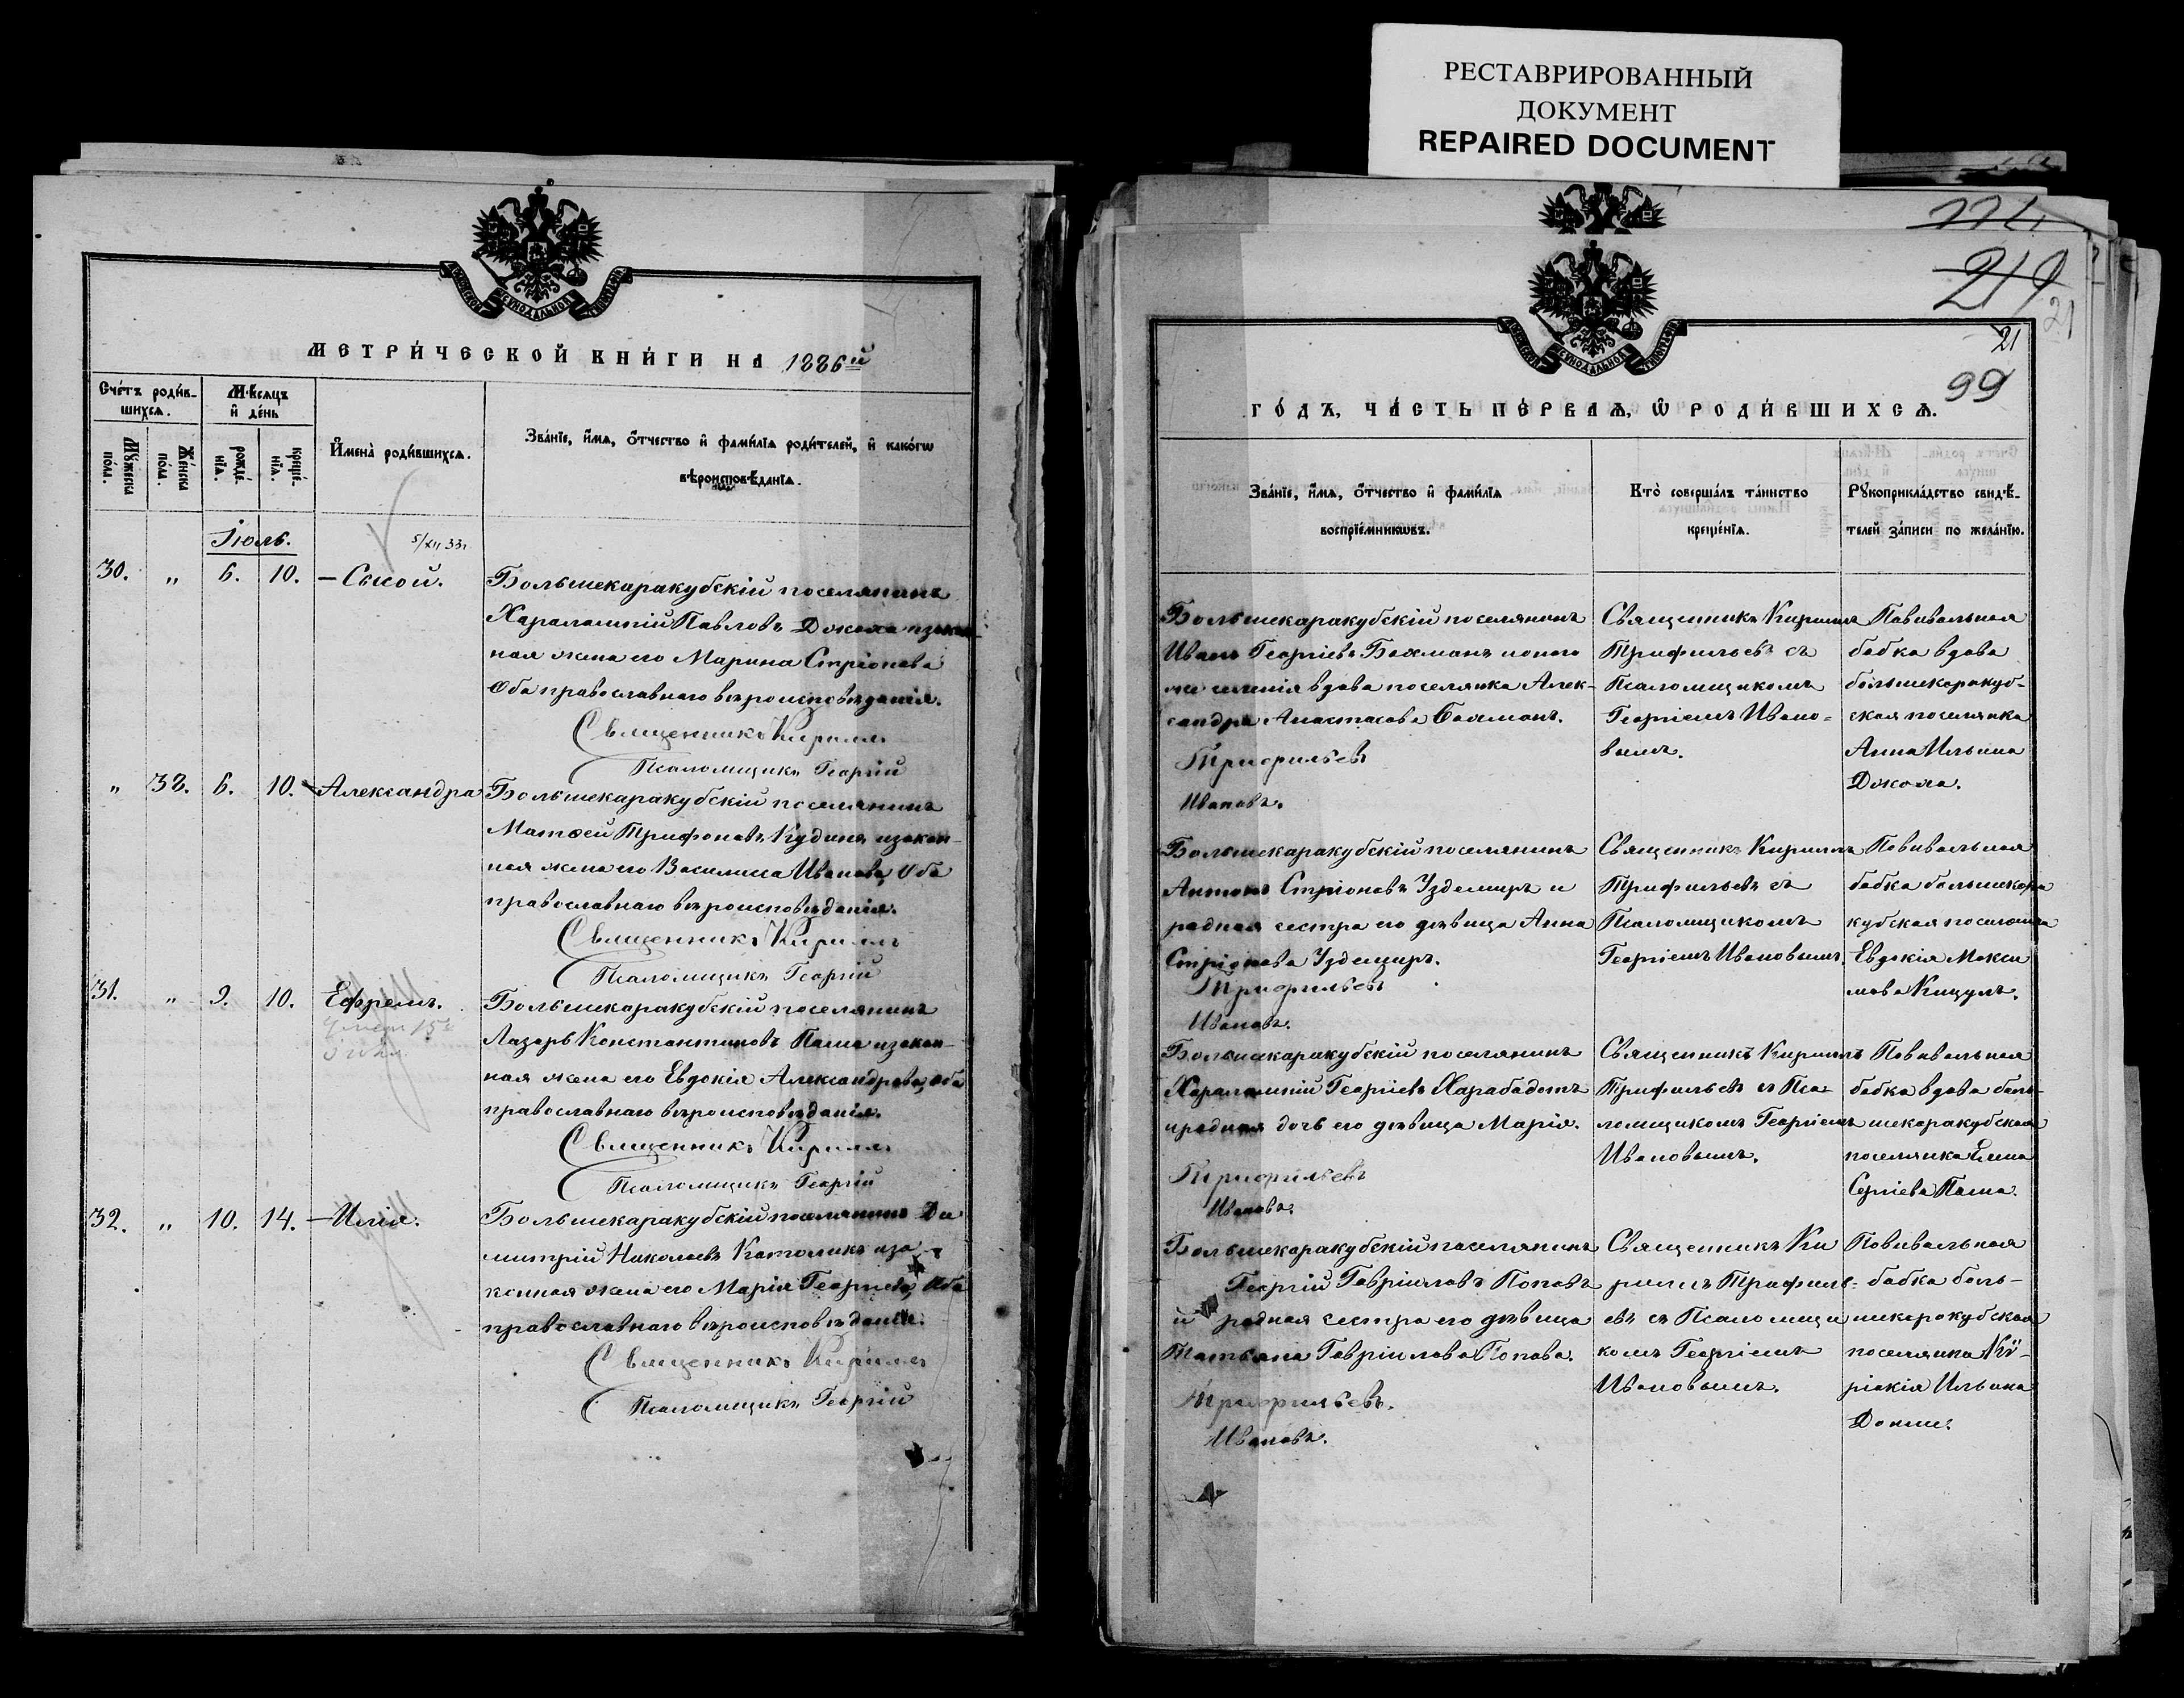 РЕСТАВРИРОВАННЫЙ
ДОКУМЕНТ
REPAIRED DOCUMENT
МЕТРИ́ЧЕСКОЙ КНИ́ГИ НА 1886й
Сче́тъ роди́в-
шихсѧ.
Мѣсѧцъ
и де́нь
Мꙋ́жеска
по́ла.
Же́нска
по́ла.
рожде́-
нїѧ.
креще́-
нїѧ.
Имена̀ роди́вшихсѧ.
Зва́нїе, и́мѧ, о́тчество и фами́лїѧ роди́телей, и како́гѡ
вѣроисповѣ́данїѧ.
Іюль.
5/XII 33г
30. " 6. 10. – Сысой.
Большекаракубскій поселянинъ
Харалампій Павловъ Джоха и закон-
ная жена его Марина Стріонова
Оба православнаго вѣроисповѣданія.
Священникъ Кириллъ
Псаломщикъ Георгій
" 38. 6. 10. – Александра
Большекаракубскій поселянинъ
Матѳей Трифоновъ Кудинъ и закон-
ная жена его Василиса Иванова, Оба
православнаго вѣроисповѣданія.
Священникъ Кириллъ
Псаломщикъ Георгій
31. " 9. 10. Ефремъ.
Большекаракубскій поселянинъ
Лазарь Константиновъ Паша и закон-
ная жена его Евдокія Александрова, Оба
православнаго вѣроисповѣданія.
Священникъ Кириллъ
Псаломщикъ Георгій
32. " 10. 14. – Илія.
Большекаракубскій поселянинъ Ди
митрій Николаевъ Католикъ и за
конная жена его Марія Георгіева, Оба
православнаго вѣроисповѣданія.
Священникъ Кириллъ
Псаломщикъ Георгій
219
21
21
99
ГО́ДЪ, ЧА́СТЬ ПЕ́РВАѦ, Ѡ РОДИ́ВШИХСѦ.
Зва́нїе, и́мѧ, о́тчество и фами́лїѧ
воспрїе́мникѡвъ.
Кто̀ соверша́лъ та́инство
креще́нїѧ.
Рꙋкоприкла́дство свидѣ́-
телей за́писи по жела́нїю.
Большекаракубскій поселянинъ
Иванъ Георгіевъ Бахманъ и того
же селенія вдова поселянка Алек-
сандра Анастасова Бахманъ.
Трифильевъ
Ивановъ.
Священникъ Кириллъ
Трифильевъ съ
Псаломщикомъ
Георгіемъ Ивано-
вымъ.
Повивальная
бабка вдова
большекаракуб-
ская поселянка
Анна Ильина
Джоха.
Большекаракубскій поселянинъ
Антонъ Стріоновъ Уздемиръ и
родная сестра его дѣвица Анна
Стріонова Уздемиръ.
Трифильевъ
Ивановъ.
Священникъ Кириллъ
Трифильевъ съ
Псаломщикомъ
Георгіемъ Ивановымъ.
Повивальная
бабка большекара
кубская поселянка
Евдокія Макси
мова Кицулъ.
Большекаракубскій поселянинъ
Харалампій Георгіевъ Харабадотъ
и родная дочь его дѣвица Марія.
Трифильевъ
Ивановъ.
Священникъ Кириллъ
Трифильевъ съ Пса-
ломщикомъ Георгіемъ
Ивановымъ.
Повивальная
бабка вдова боль-
шекаракубская
поселянка Елена
Сергіева Паша.
Большекаракубскій поселянинъ
Георгій Гавріиловъ Поповъ
и родная сестра его дѣвица
Татьяна Гавріилова Попова.
Трифильевъ.
Ивановъ.
Священникъ Ки
риллъ Трифиль-
евъ съ Псаломщи
комъ Георгіемъ
Ивановымъ.
Повивальная
бабка боль-
шекаракубская
поселянка Кѵ-
ріакія Ильина